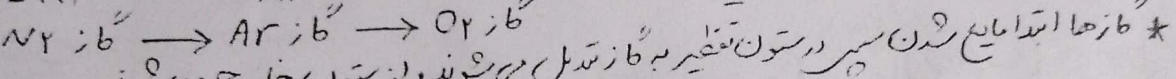 گاز N2 → گاز Ar → گاز O2
* گازها ابتدا مایع شدن سپس در ستون تقطیر به گاز تبدیل می‌شوند